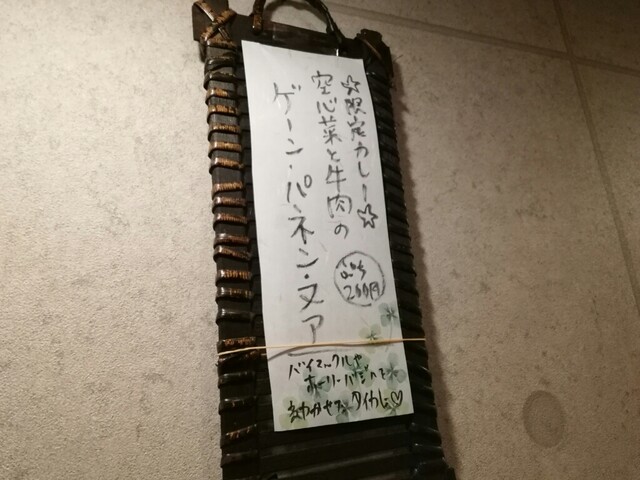 ☆限定カレー☆
空心菜と牛肉の
ゲーン・パーネン・ヌア
200円
バイマックルや
ホーリーバジルを
きかせた タイカレー♡